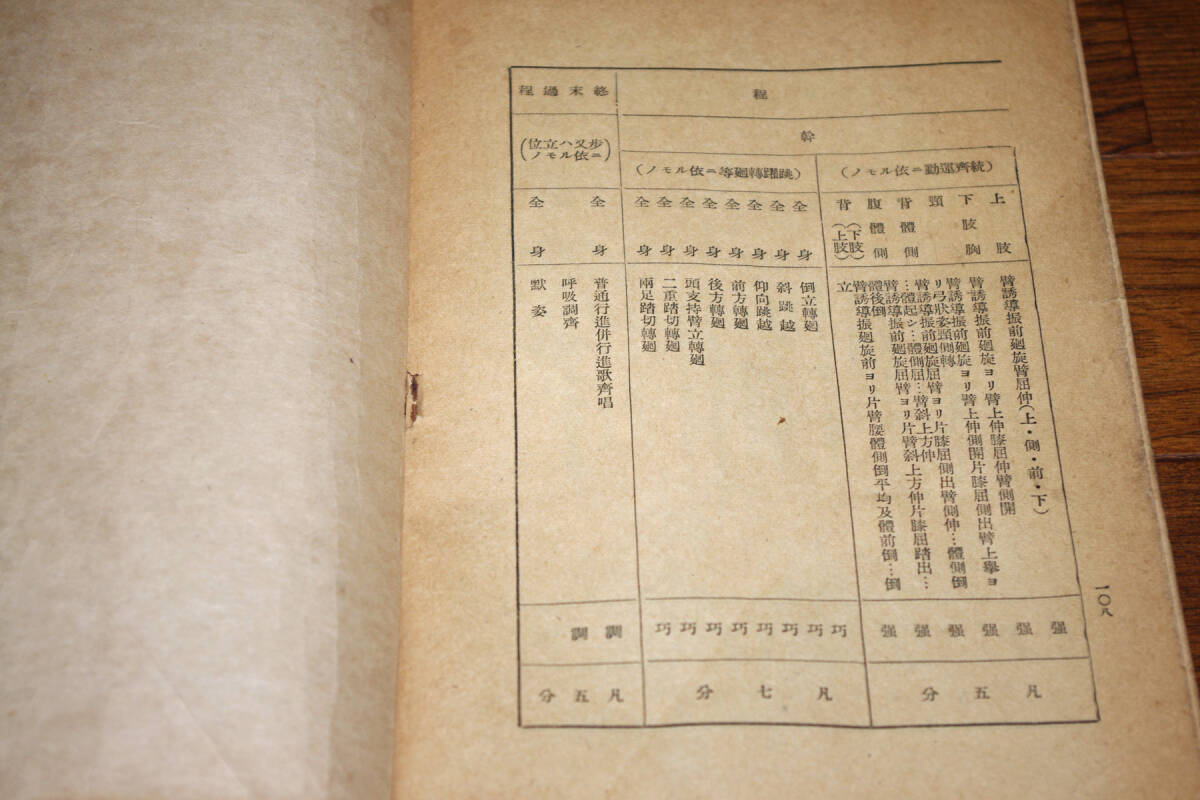 一〇八
程
幹
(統齊運動ニ依ルモノ)
上肢
下肢胸
頸
背體側
腹體側
背(下肢)(上肢)
臂誘導振前廻旋臂屈伸(上・側・前・下)
臂誘導振前廻旋ヨリ臂上伸膝屈伸臂側開
臂誘導振前廻旋ヨリ臂上伸側開片膝屈側出臂上擧ヨ
リ弓狀姿頸側轉
臂誘導振前廻旋屈臂ヨリ片膝屈側出臂側伸…體側倒
…體起シ…體側屈…臂斜上方伸
臂誘導振前廻旋屈臂ヨリ片臂斜上方伸片膝屈踏出…
體後倒
臂誘導振廻旋前ヨリ片臂腰體側倒平均及體前倒…倒
立
强
强
强
强
强
强
凡五分
(跳躍轉廻等ニ依ルモノ)
全身
全身
全身
全身
全身
全身
全身
全身
倒立轉廻
斜跳越
仰向跳越
前方轉廻
後方轉廻
頭支持臂立轉廻
二重踏切轉廻
兩足踏切轉廻
巧
巧
巧
巧
巧
巧
巧
巧
凡七分
終末過程
(步又ハ立位
ニ依ルモノ)
全身
全身
普通行進併行進歌齊唱
呼吸調齊
默姿
調
調
凡五分